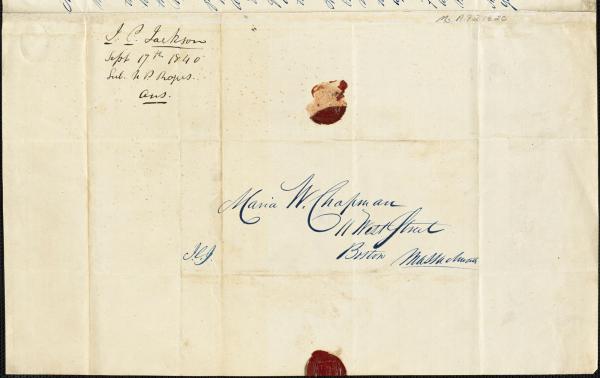 J. C. Jackson
Sept 17th 1840
Sub. N P Rogers.
Ans.
Maria W. Chapman
11 West Street
Boston Massachusetts
JCJ.